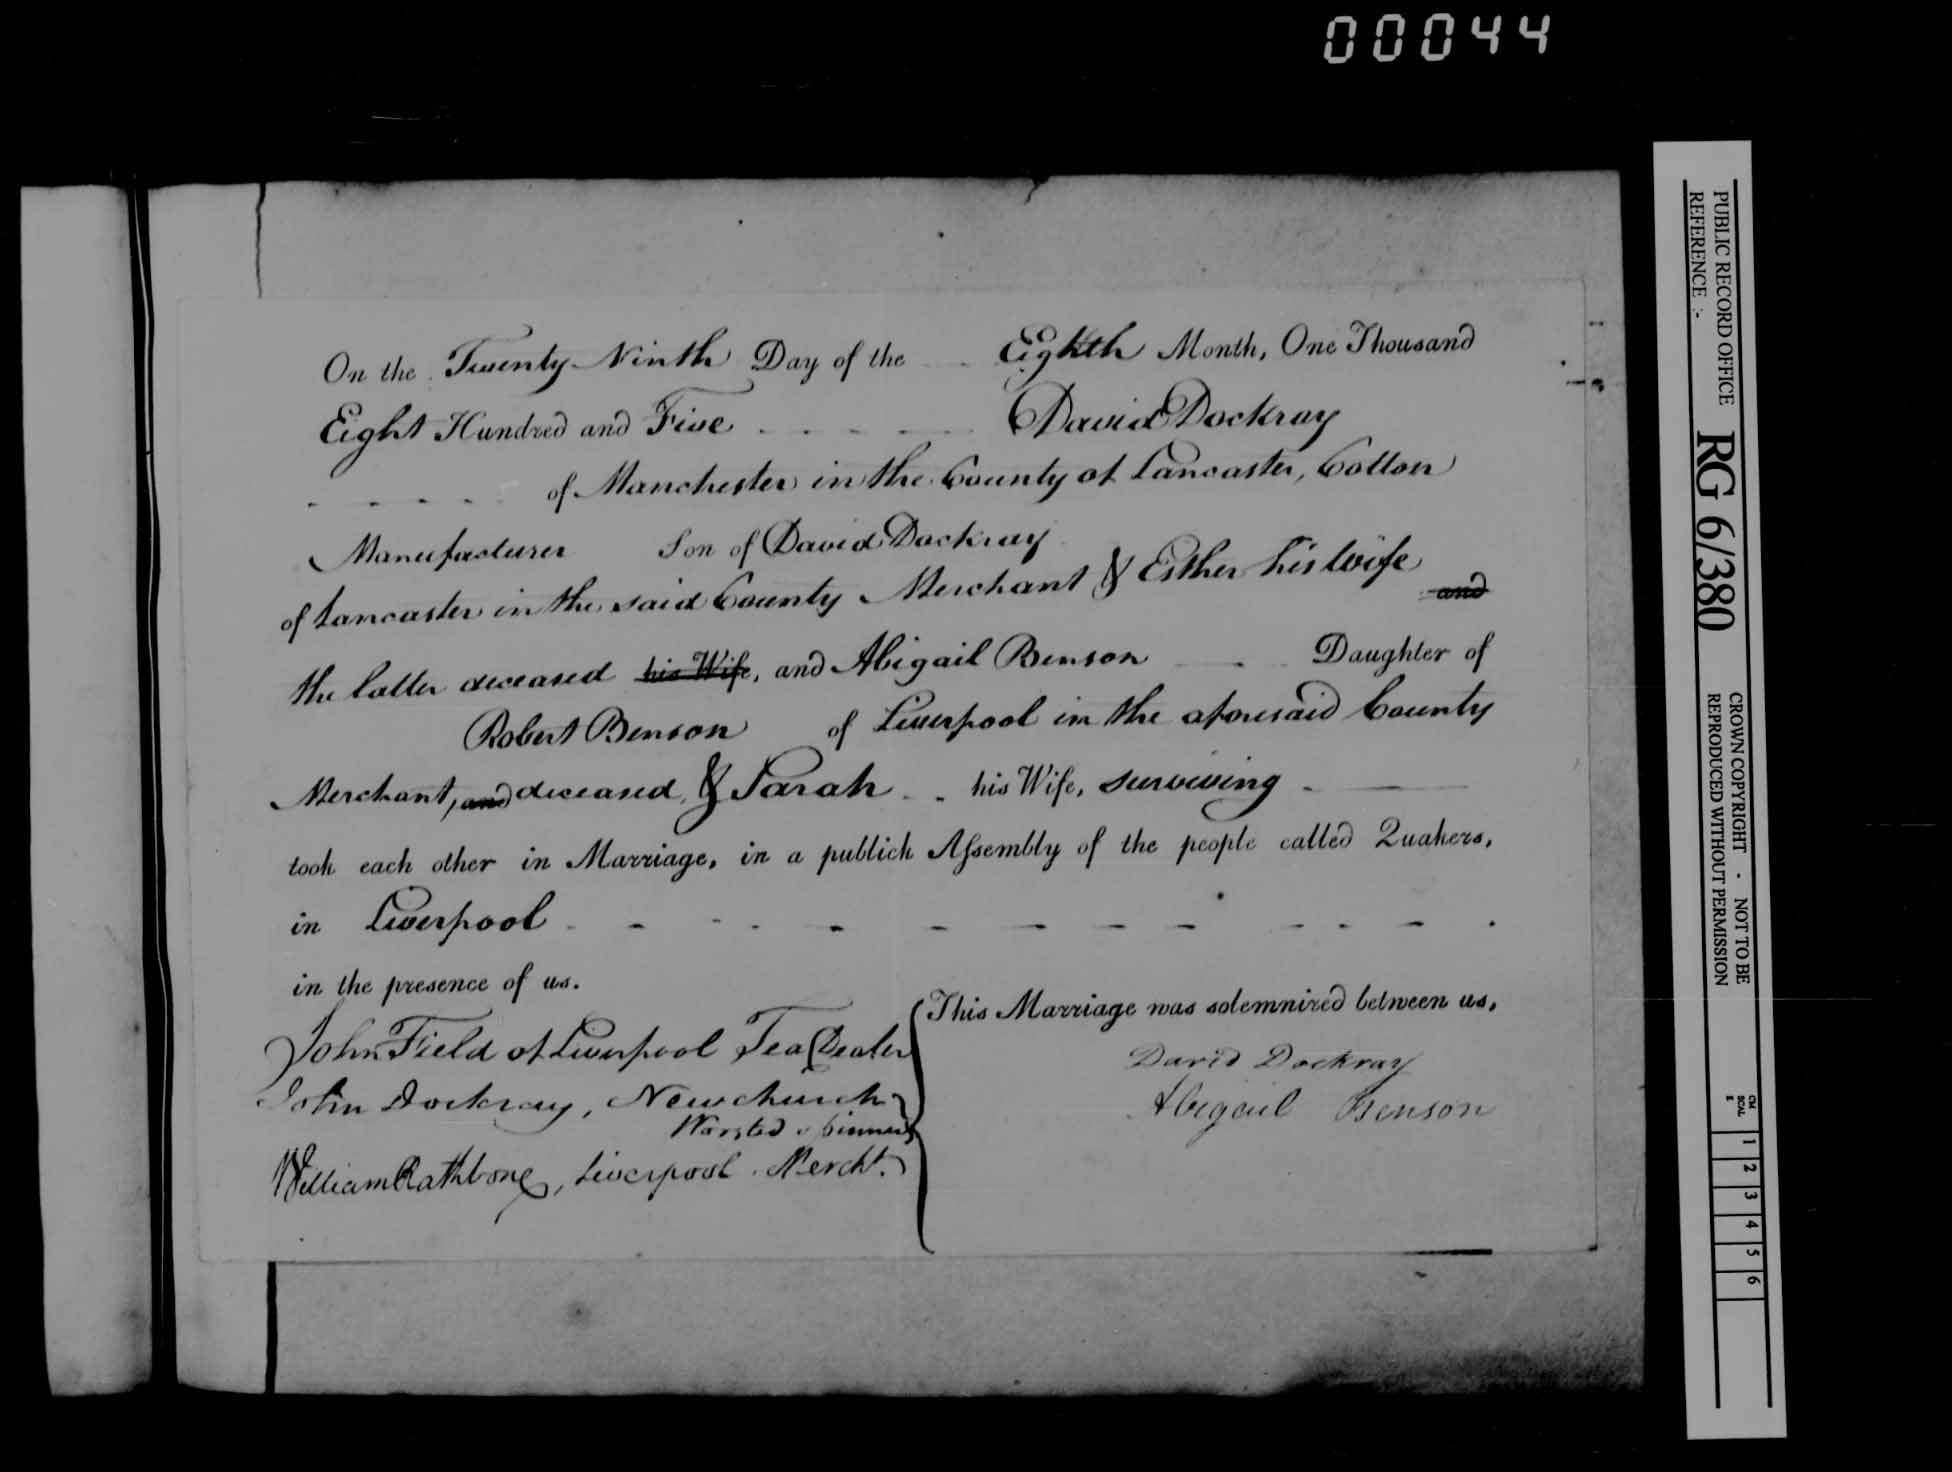 00044
On the Twenty Ninth Day of the Eighth Month, One Thousand
Eight Hundred and Five David Dockray
of Manchester in the County of Lancaster, Cotton
Manufacturer Son of David Dockray
of Lancaster in the said County Merchant & Esther his Wife and
the latter deceased his Wife, and Abigail Benson Daughter of
Robert Benson of Liverpool in the aforesaid County
Merchant, and deceased, & Sarah his Wife, surviving
took each other in Marriage, in a publick Assembly of the people called Quakers,
in Liverpool
in the presence of us.
John Field of Liverpool Tea Dealer
John Dockray, Newchurch
Worsted Spinner
William Rathbone, Liverpool Mercht.
This Marriage was solemnized between us,
David Dockray
Abigail Benson
PUBLIC RECORD OFFICE
REFERENCE :-
RG 6/380
CROWN COPYRIGHT - NOT TO BE
REPRODUCED WITHOUT PERMISSION
CM
SCALE
1 2 3 4 5 6